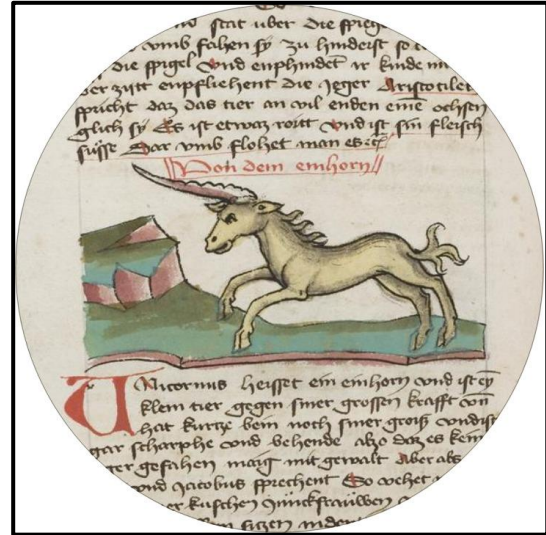 stat uber die spieg
vmb fahen sy zu hinderst so
die spigel vnd enphindet ir kinde
zytt enpflichent die Jeger Aristotiles
spricht daz das tier an vil enden eine ochsen
glich sy Es ist etwaz rott vnd ist sin fleisch
süsse Dar vmb flohet man es
Von dem einhorn
Vnicornus heisset ein einhorn vnd ist ey
klein tier gegen siner grossen krafft von
hat kurtze bein noch siner größ vnd ist
gar scharphe vnd behende also daz es kein
ger gefahen maig mit gewalt Aber als
vnd Jacobus sprechent So wehet
er kuschen Junckfrauwen
sitzen